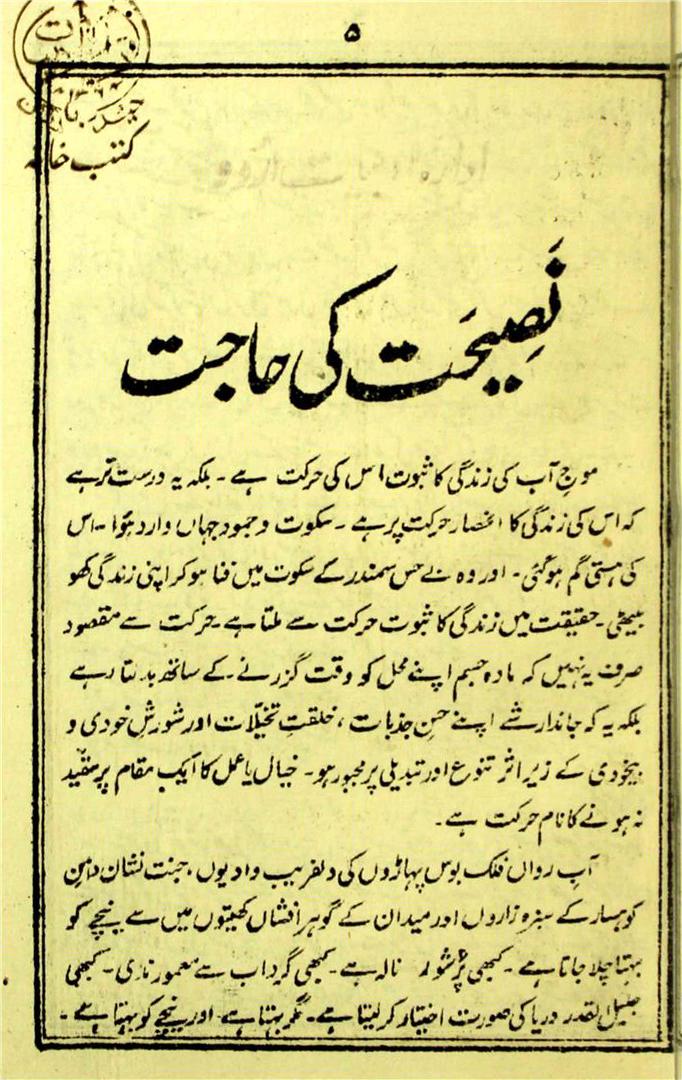 ۵
کتب خانہ
نَصِیحَت کی حاجت
موجِ آب کی زندگی کا ثبوت اس کی حرکت ہے۔ بلکہ یہ درست تر ہے
کہ اس کی زندگی کا انحصار حرکت پر ہے۔ سکوت و جمود جہاں وارد ہؤا۔ اس
کی ہستی گم ہوگئی۔ اور وہ بے حس سمندر کے سکوت میں فنا ہو کر اپنی زندگی کھو
بیٹھی۔ حقیقت میں زندگی کا ثبوت حرکت سے ملتا ہے۔ حرکت سے مقصود
صرف یہ نہیں کہ مادہ جسم اپنے محل کو وقت گزرنے کے ساتھ بدلتا رہے
بلکہ یہ کہ جاندار شے اپنے حسنِ جذبات، خلقتِ تخیّلات اور شورشِ خودی و
بیخودی کے زیر اثر تنوع اور تبدیلی پر مجبور ہو۔ خیال یا عمل کا ایک مقام پر مقیّد
نہ ہونے کا نام حرکت ہے۔
آبِ رواں فلک بوس پہاڑوں کی دلفریب وادیوں، جنت نشان دامنِ
کوہسار کے سبزہ زاروں اور میدان کے گوہر افشاں کھیتوں میں سے نیچے کو
بہتا چلا جاتا ہے۔ کبھی پُر شور نالہ ہے۔ کبھی گرداب سے معمور ندی۔ کبھی
جلیل القدر دریا کی صورت اختیار کر لیتا ہے۔ مگر بہتا ہے۔ اور نیچے کو بہتا ہے۔